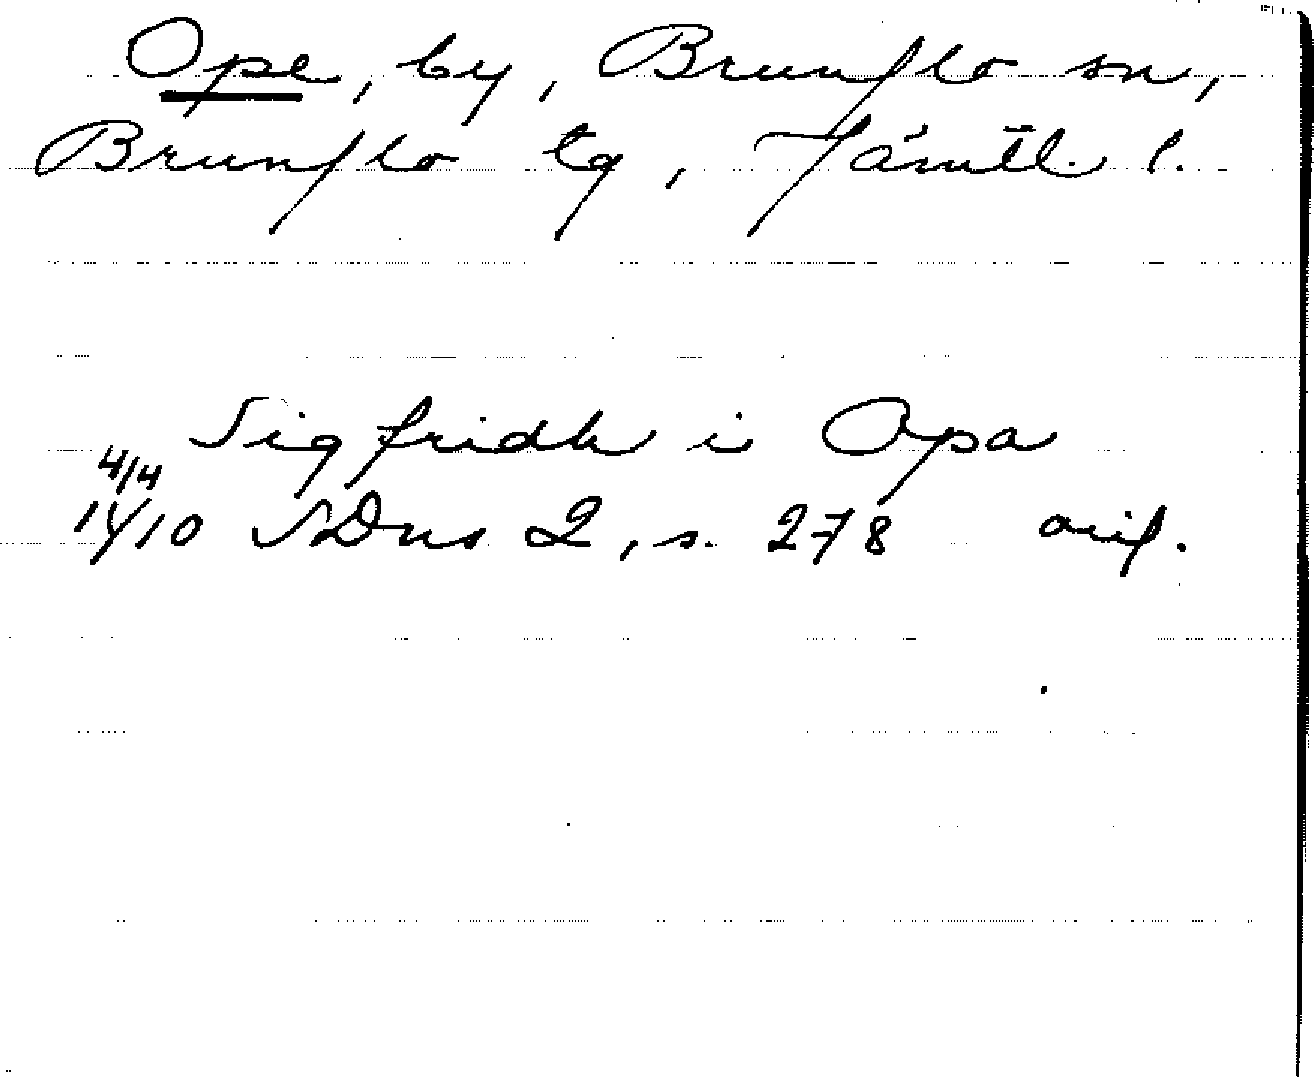 Ope, by, Brunflo sn,
Brunflo tg, Jämtl. l.
Sigfridh i Opa
4/4
14/10 SDns 2, s. 278 orig.